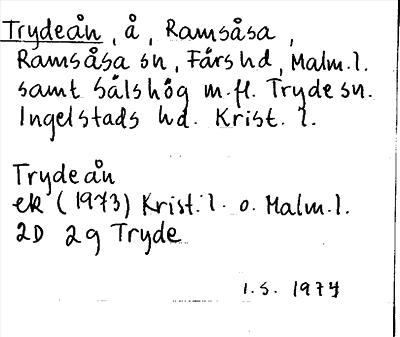 Trydeån, å, Ramsåsa,
Ramsåsa sn, Färs hd, Malm. l.
samt Sålshög m.fl. Tryde sn.
Ingelstads hd. Krist. l.
Trydeån
ek (1973) Krist. l. o. Malm. l.
2D 2g Tryde
I.S. 1974